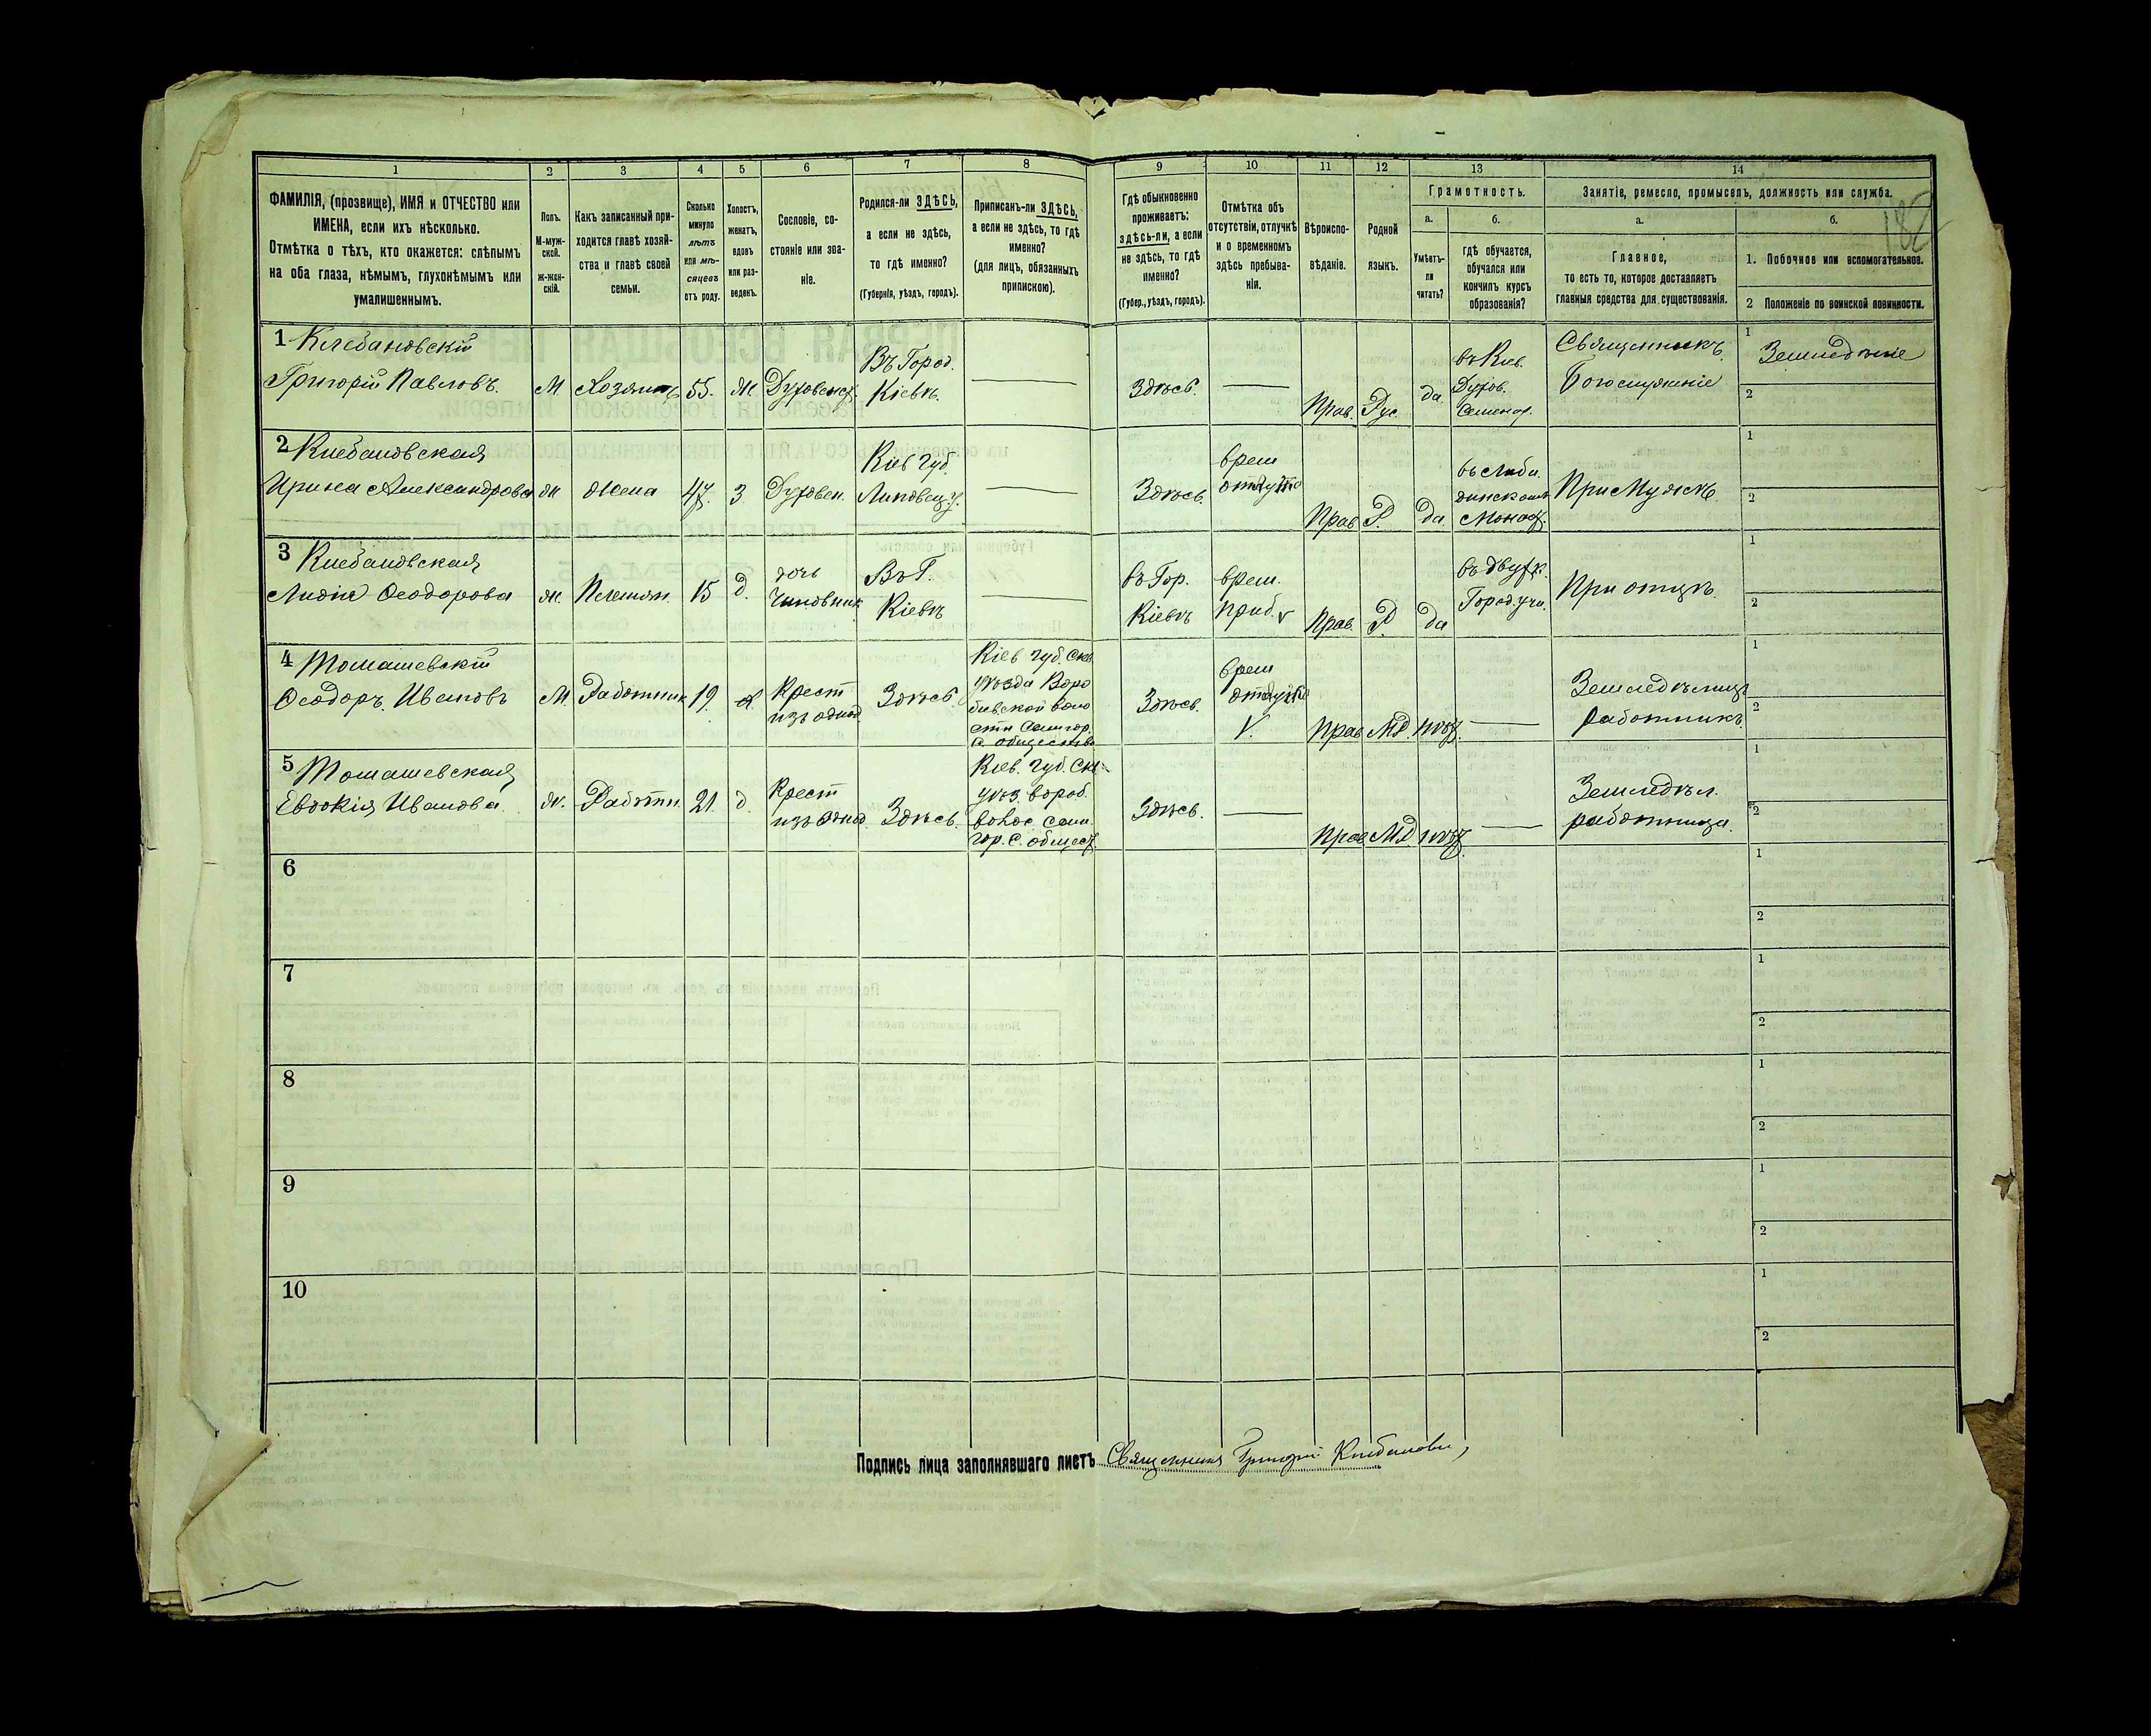 1 2 3 4 5 6 7 8 9 10 11 12 13 14
ФАМИЛІЯ, (прозвище), ИМЯ и ОТЧЕСТВО или
ИМЕНА, если ихъ нѣсколько.
Отмѣтка о тѣхъ, кто окажется: слѣпымъ
на оба глаза, нѣмымъ, глухонѣмымъ или
умалишеннымъ.
Полъ.
М-муж-
ской.
ж-жен-
скій.
Какъ записанный при-
ходится главѣ хозяй-
ства и главѣ своей
семьи.
Сколько
минуло
лѣтъ
или мѣ-
сяцевъ
отъ роду.
Холостъ,
женатъ,
вдовъ
или раз-
веденъ.
Сословіе, со-
стояніе или зва-
ніе.
Родился-ли ЗДѢСЬ,
а если не здѣсь,
то гдѣ именно?
(Губернія, уѣздъ, городъ).
Приписанъ-ли ЗДѢСЬ,
а если не здѣсь, то гдѣ
именно?
(для лицъ, обязанныхъ
припискою).
Гдѣ обыкновенно
проживаетъ:
здѣсь-ли, а если
не здѣсь, то гдѣ
именно?
(Губер., уѣздъ, городъ).
Отмѣтка объ
отсутствіи, отлучкѣ
и о временномъ
здѣсь пребыва-
ніи.
Вѣроиспо-
вѣданіе.
Родной
языкъ.
Грамотность.
а.
Умѣетъ-
ли
читать?
б.
гдѣ обучается,
обучался или
кончилъ курсъ
образованія?
Занятіе, ремесло, промыселъ, должность или служба.
а.
Главное,
то есть то, которое доставляетъ
главныя средства для существованія.
б.
1. Побочное или вспомогательное.
2 Положеніе по воинской повинности.
182
1 Клебановскій
Григорій Павловъ.
М.
Хозяинъ
55.
Ж.
Духовенст.
Въ Город.
Кіевѣ.
Здѣсь.
Прав.
Рус.
да.
въ Кіев.
Духов.
Семинар.
Священникъ.
Богослуженіе
1 Земледѣліе
2
2 Клебановская
Ирина Александрова
ж
жена
47.
З
Духовен.
Кіев губ.
Липовец. у.
Здѣсь.
врем
отлучка
Прав
Р.
да.
въ Лебе
динскомъ
Монас.
При Мужѣ.
1
2
3 Клебановская
Лидія Ѳеодорова
ж.
Племян.
15
д.
дочь
чиновник
Въ Г.
Кіевѣ
въ Гор.
Кіевѣ
врем.
приб. v
Прав.
Р.
да
въ двухк.
Город. учи.
При отцѣ.
1
2
4 Томашевскій
Ѳеодоръ Ивановъ
М.
Работник
19.
х
Крест
изъ однод
Здѣсь.
Кіев губ. Скв.
уѣзда Воро
бивской воло
сти Самгор.
с. общество
Здѣсь.
врем
отлучка
V.
Прав
МР.
нѣт.
Земледѣлицъ
работникъ
1
2
5 Томашевская
Евдокія Иванова.
ж.
Работн.
21.
д.
Крест
изъ однод.
Здѣсь.
Кіев. губ. Скв.
уѣз. Вороб.
волос Сам.
гор. с. общест.
Здѣсь.
Прав
МР
нѣт.
Земледѣл.
работница.
1
2
6
1
2
7
1
2
8
1
2
9
1
2
10
1
2
Подпись лица заполнявшаго листъ Священникъ Григорій Клебановс